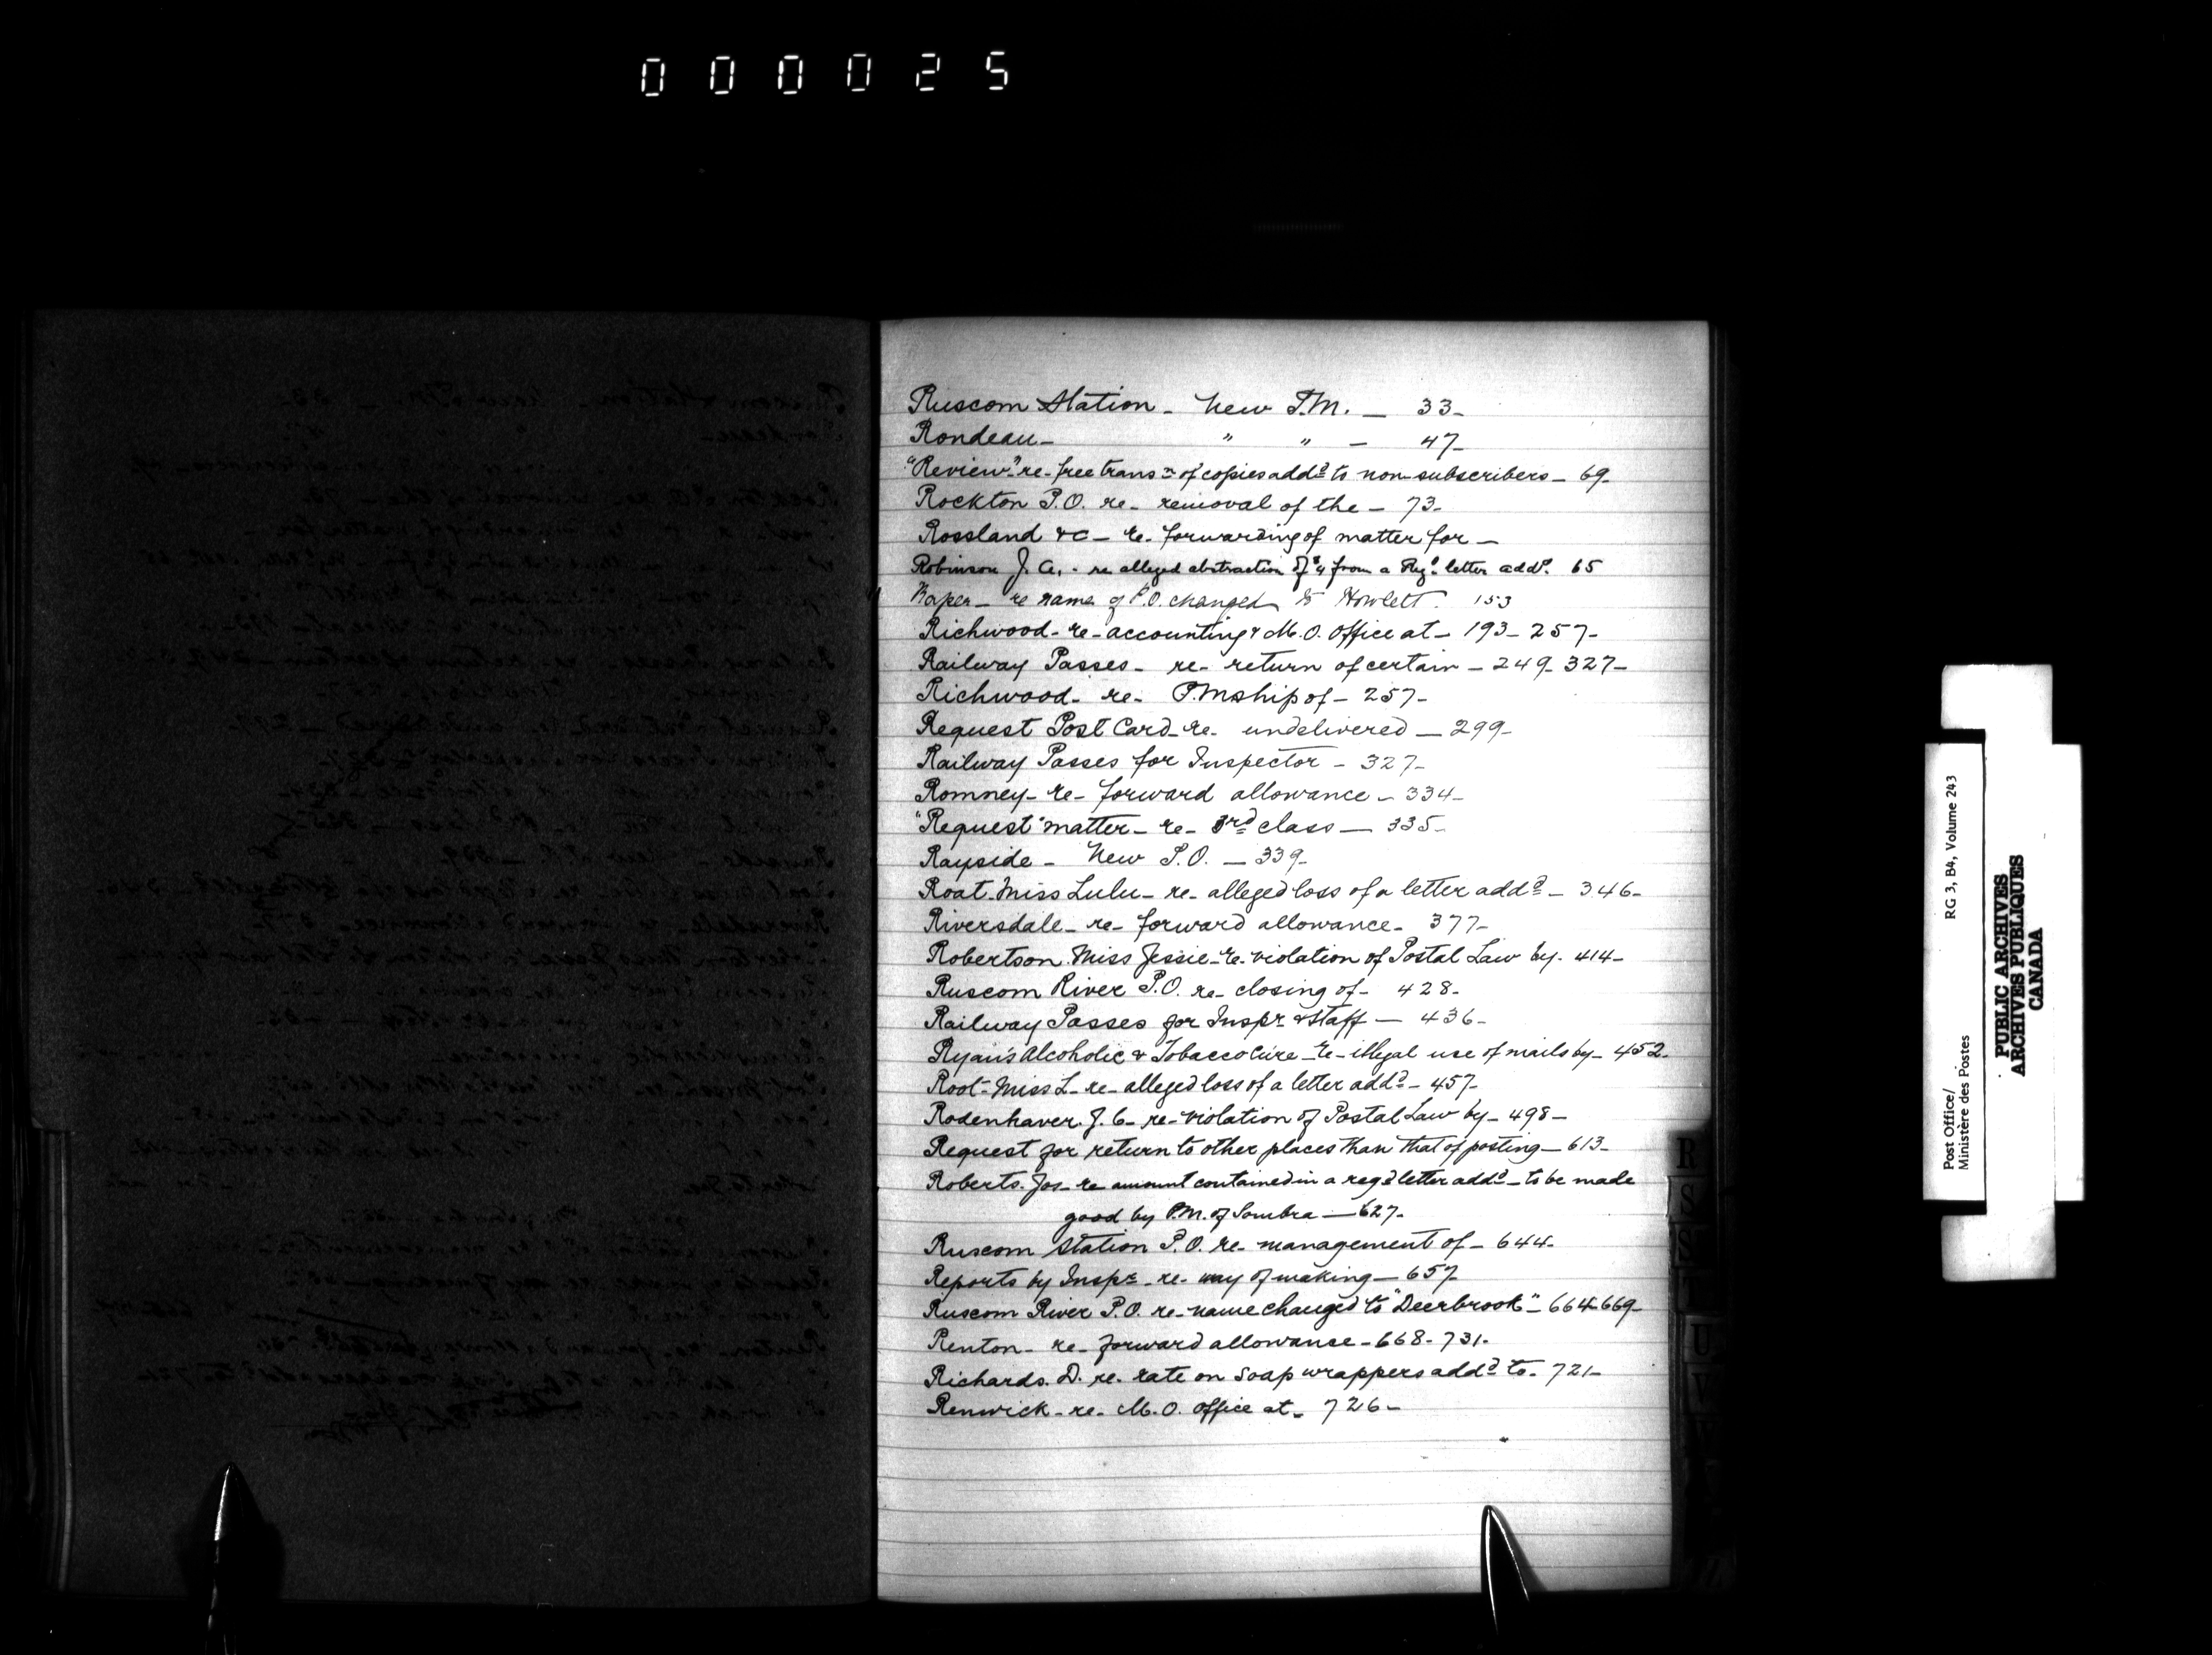 000025
Ruscom Station - New P.M. - 33-
Rondeau - " " - 47-
"Review" re- free transn of copies addd to non-subscribers - 69-
Rockton P.O. re- removal of the - 73-
Rossland &c - re- forwarding of matter for -
Robinson J. A. - re alleged abstraction of $4 from a Regd letter addd. 65
Raper - re name of P.O. changed to Howlett. 153
Richwood - re- accounting & M.O. office at - 193- 257-
Railway Passes - re- return of certain - 249- 327-
Richwood - re- P.Mship of - 257-
Request Post Card - re- undelivered - 299-
Railway Passes for Inspector - 327-
Romney - re- forward allowance - 334-
"Request" matter - re- 3rd class - 335-
Rayside - New P.O. - 339-
Roat Miss Lulu - re- alleged loss of a letter addd - 346-
Riversdale - re- forward allowance - 377-
Robertson Miss Jessie - re- violation of Postal Law by - 414-
Ruscom River P.O. re- closing of - 428-
Railway Passes for Inspr & Staff - 436-
Ryan's Alcoholic & Tobacco Cure - re- illegal use of mails by - 452-
Root - Miss L - re- alleged loss of a letter addd - 457-
Rodenhaver J. C - re- violation of Postal Law by - 498-
Request for return to other places than that of posting - 613-
Roberts Jos - re amount contained in a regd letter addd - to be made
good by P.M. of Sombra - 627-
Ruscom Station P.O. re- management of - 644-
Reports by Inspr - re- way of making - 657
Ruscom River P.O. re- name changed to "Deerbrook" - 664-669-
Renton - re- forward allowance - 668- 731-
Richards. D. re- rate on soap wrappers addd to - 721-
Renwick - re- M.O. office at - 726-
R
S
U
Post Office/
Ministère des Postes
RG 3, B4, Volume 243
PUBLIC ARCHIVES
ARCHIVES PUBLIQUES
CANADA